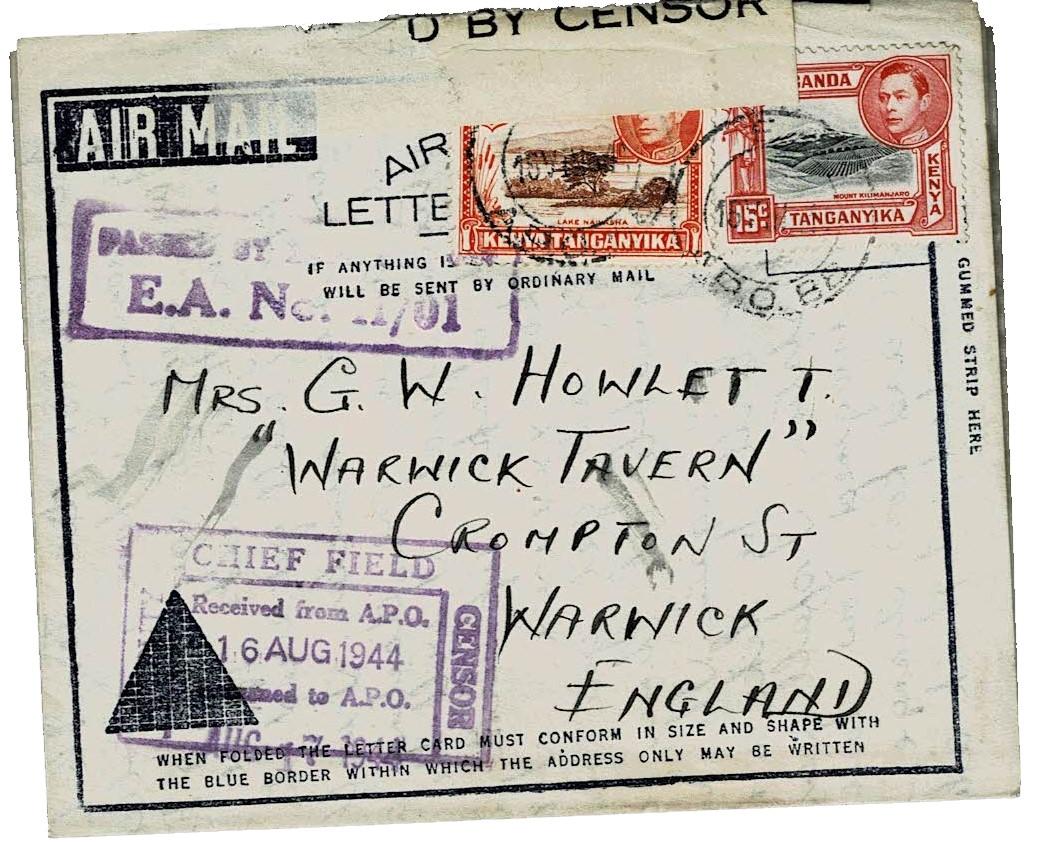 D BY CENSOR
AIR MAIL
AIR
LETTE
LAKE NAIVASHA
KENYA TANGANYIKA
ANDA
MOUNT KILIMANJARO
KENYA
15c TANGANYIKA
PASSED BY
E.A. No. 11/01
IF ANYTHING IS
WILL BE SENT BY ORDINARY MAIL
GUMMED STRIP HERE
MRS. G. W. HOWLETT.
"WARWICK TAVERN"
CROMPTON ST
WARWICK
ENGLAND
CHIEF FIELD
CENSOR
Received from A.P.O.
16 AUG 1944
to A.P.O.
AUG 1944
WHEN FOLDED THE LETTER CARD MUST CONFORM IN SIZE AND SHAPE WITH
THE BLUE BORDER WITHIN WHICH THE ADDRESS ONLY MAY BE WRITTEN